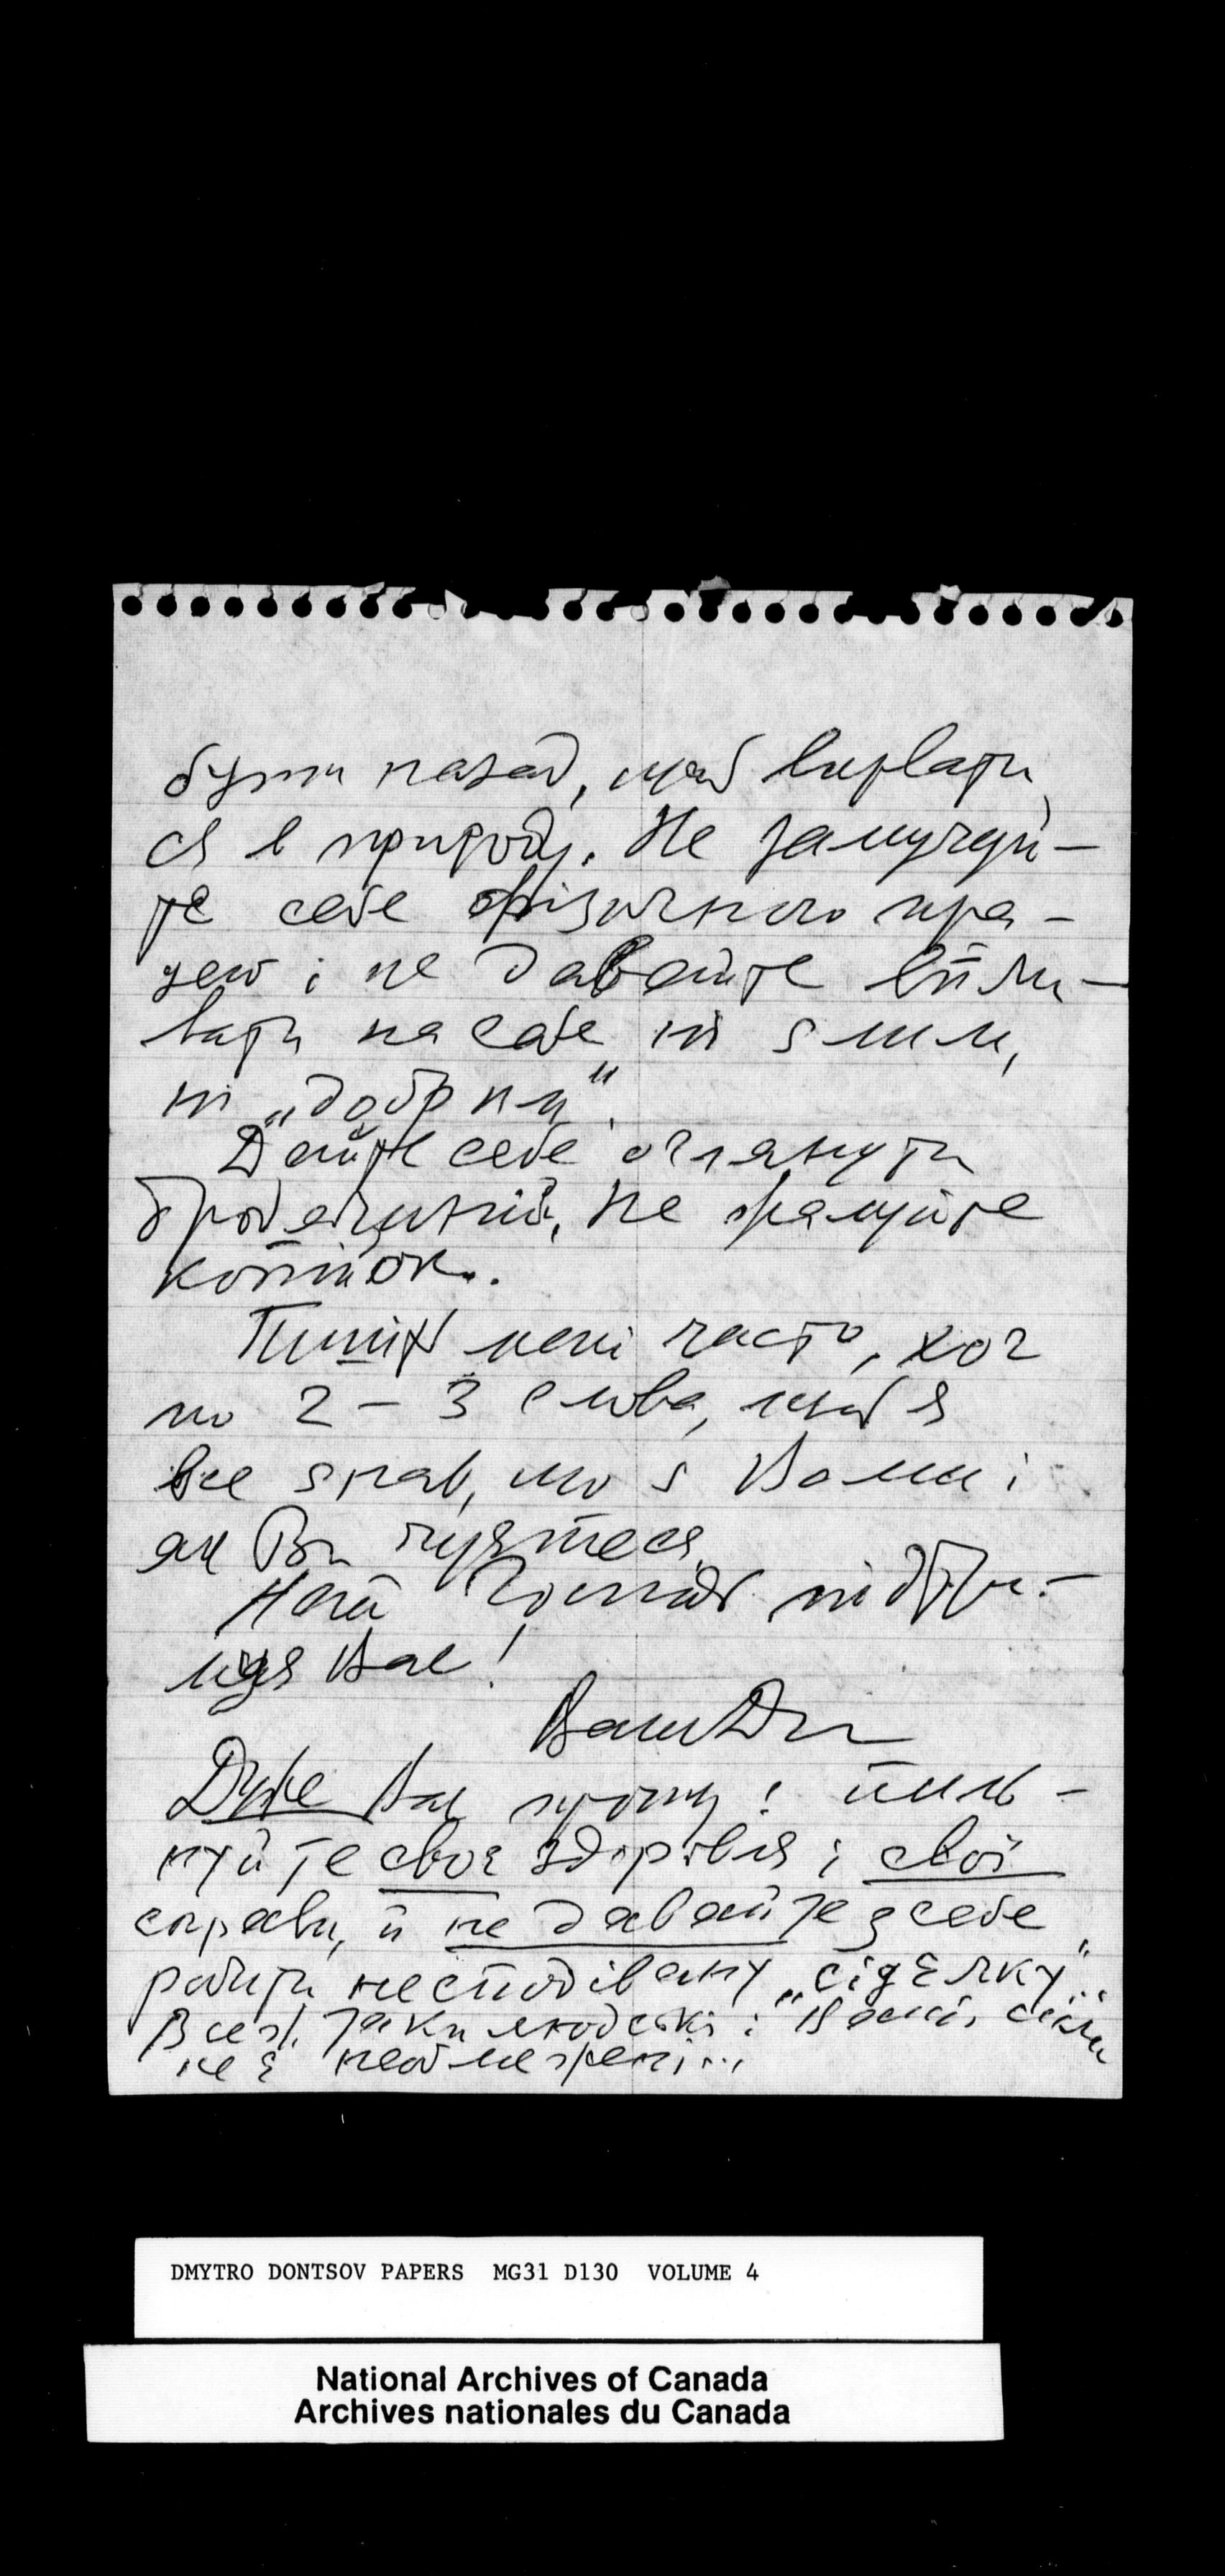 бути назад, щоб вирвати
ся в природу. Не замучуй-
те себе фізичною пра-
цею і не давайте впли-
вати на себе ні злим,
ні „добрим".
Дайте себе оглянути
не жалуйте
копійок.
Пишіть мені часто, хоч
по 2 – 3 слова, щоб я
все знав, що з Вами і
як Ви чуєтеся
Нехай Господь підтри-
мує Вас!
Ваш Д
Дуже Вас прошу! пиль-
нуйте своє здоровля і свої
справи, й не давайте з себе
робити несподівану „сіделку"..
Все ж таки людські і Ваші, сили
не є необмежені...
DMYTRO DONTSOV PAPERS MG31 D130 VOLUME 4
National Archives of Canada
Archives nationales du Canada